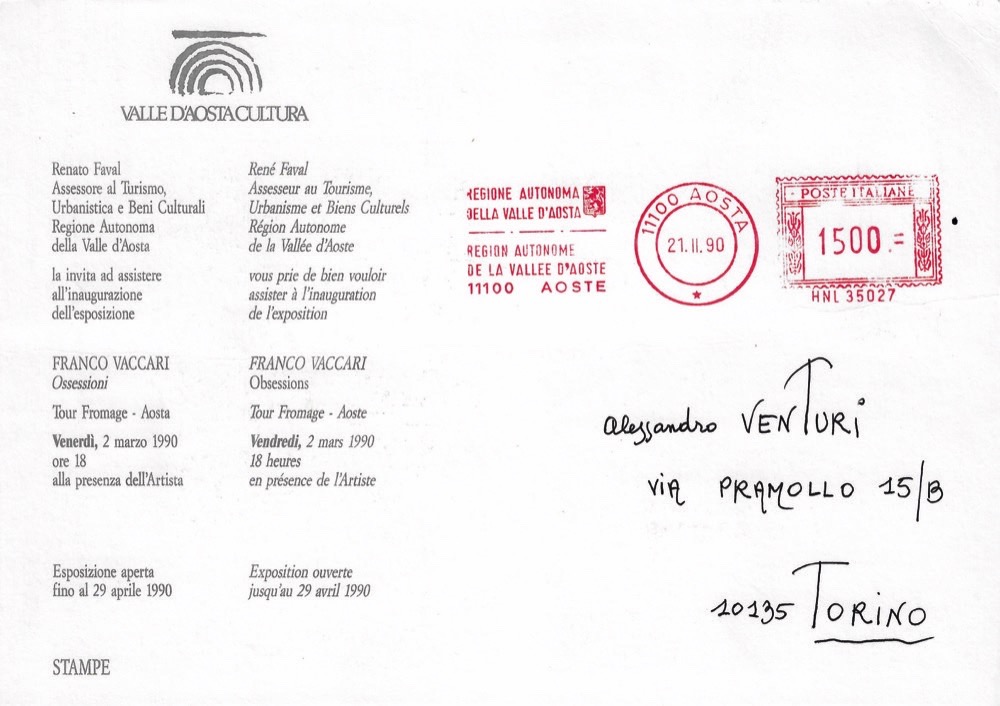 VALLE D'AOSTA CULTURA
Renato Faval
Assessore al Turismo,
Urbanistica e Beni Culturali
Regione Autonoma
della Valle d'Aosta
la invita ad assistere
all'inaugurazione
dell'esposizione
FRANCO VACCARI
Ossessioni
Tour Fromage - Aosta
Venerdì, 2 marzo 1990
ore 18
alla presenza dell'Artista
Esposizione aperta
fino al 29 aprile 1990
STAMPE
René Faval
Assesseur au Tourisme,
Urbanisme et Biens Culturels
Région Autonome
de la Vallée d'Aoste
vous prie de bien vouloir
assister à l'inauguration
de l'exposition
FRANCO VACCARI
Obsessions
Tour Fromage - Aoste
Vendredi, 2 mars 1990
18 heures
en présence de l'Artiste
Exposition ouverte
jusqu'au 29 avril 1990
REGIONE AUTONOMA
DELLA VALLE D'AOSTA
REGION AUTONOME
DE LA VALLEE D'AOSTE
11100 AOSTE
11100 AOSTA
21.II.90
POSTE ITALIANE
1500.=
HNL 35027
Alessandro VENTURI
VIA PRAMOLLO 15/B
10135 TORINO